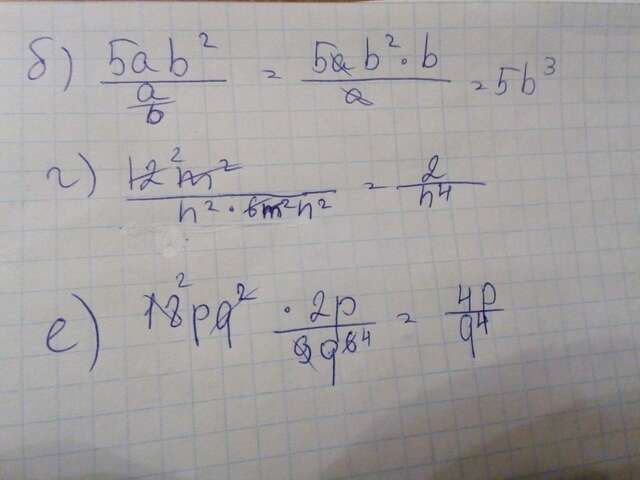 б) 5ab² / (a/b) = 5ab²·b / a = 5b³
г) 12²m² / n²·6m²n² = 2 / n⁴
е) 18²pq² · 2p / 9q⁶⁴ = 4p / q⁴